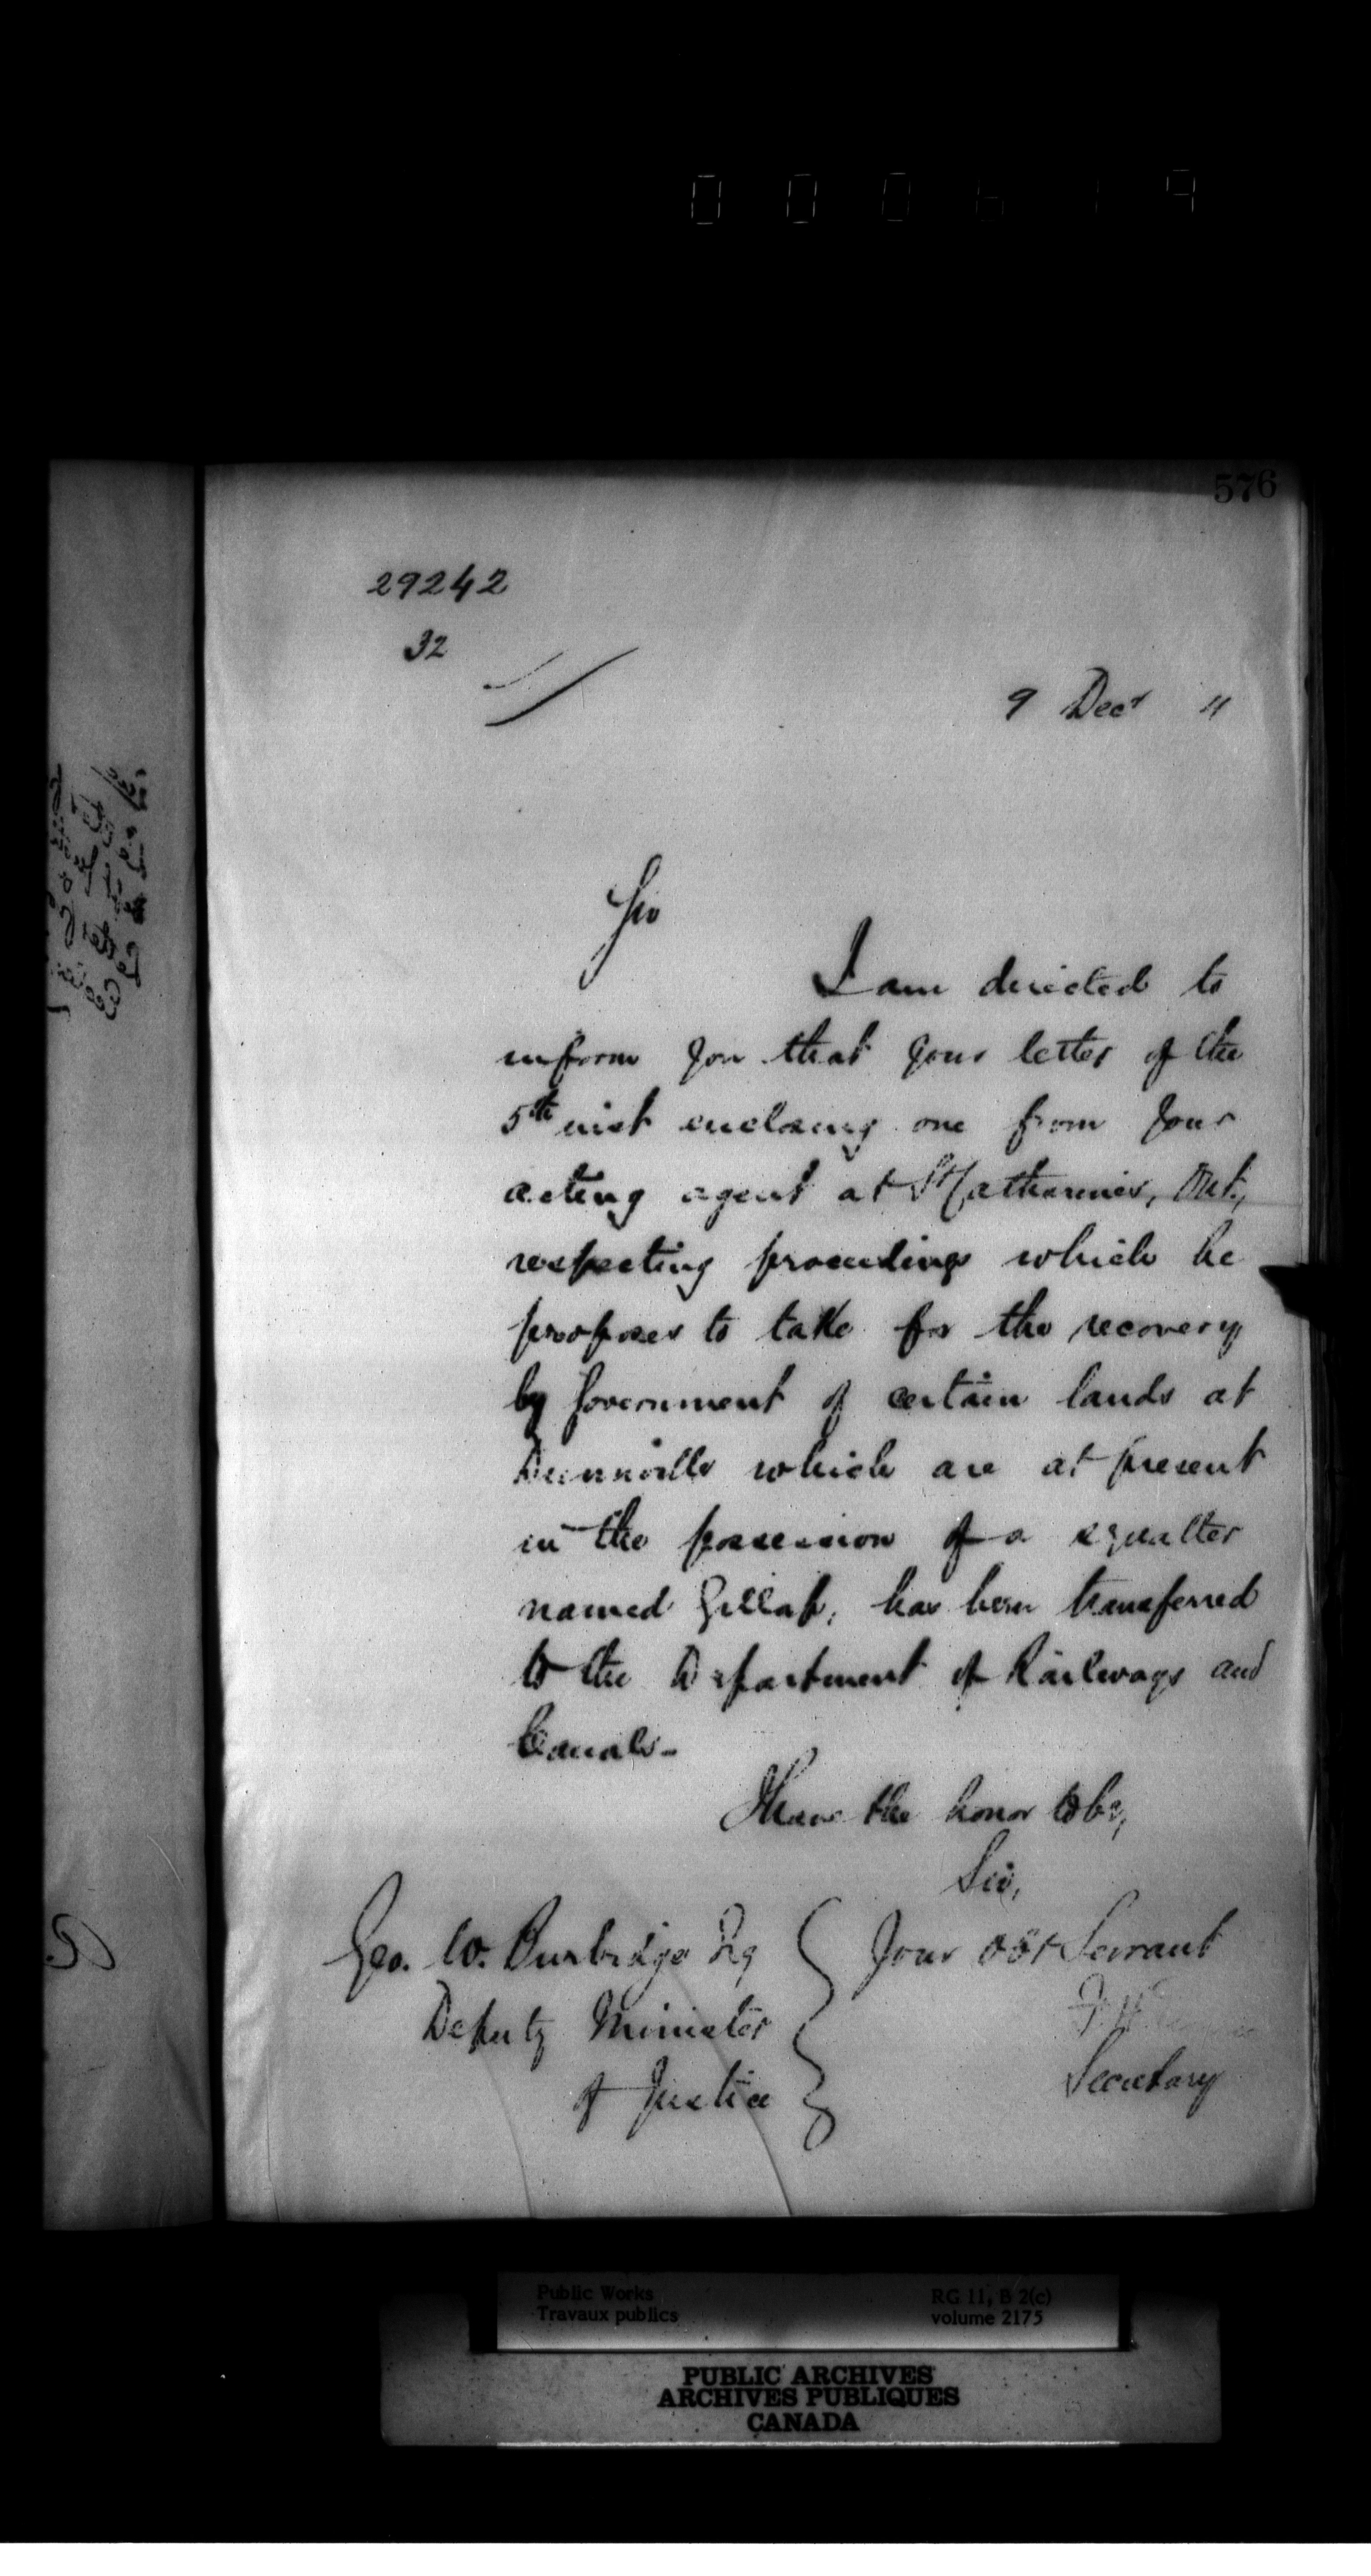 000619
576
29242
32
9 Decr "
Sir
I am directed to
inform you that your letter of the
5th inst enclosing one from your
acting agent at St Catharines, Ont.,
respecting proceedings which he
proposes to take for the recovery
by Government of certain lands at
Dunnville which are at present
in the possession of a squatter
named has been transferred
to the Department of Railways and
Canals -
I have the honor to be,
Sir,
Geo. W. Burbidge Esq
Your obt Servant
Deputy Minister
Secretary
of Justice
Public Works
Travaux publics
RG 11, B 2(c)
volume 2175
PUBLIC ARCHIVES
ARCHIVES PUBLIQUES
CANADA